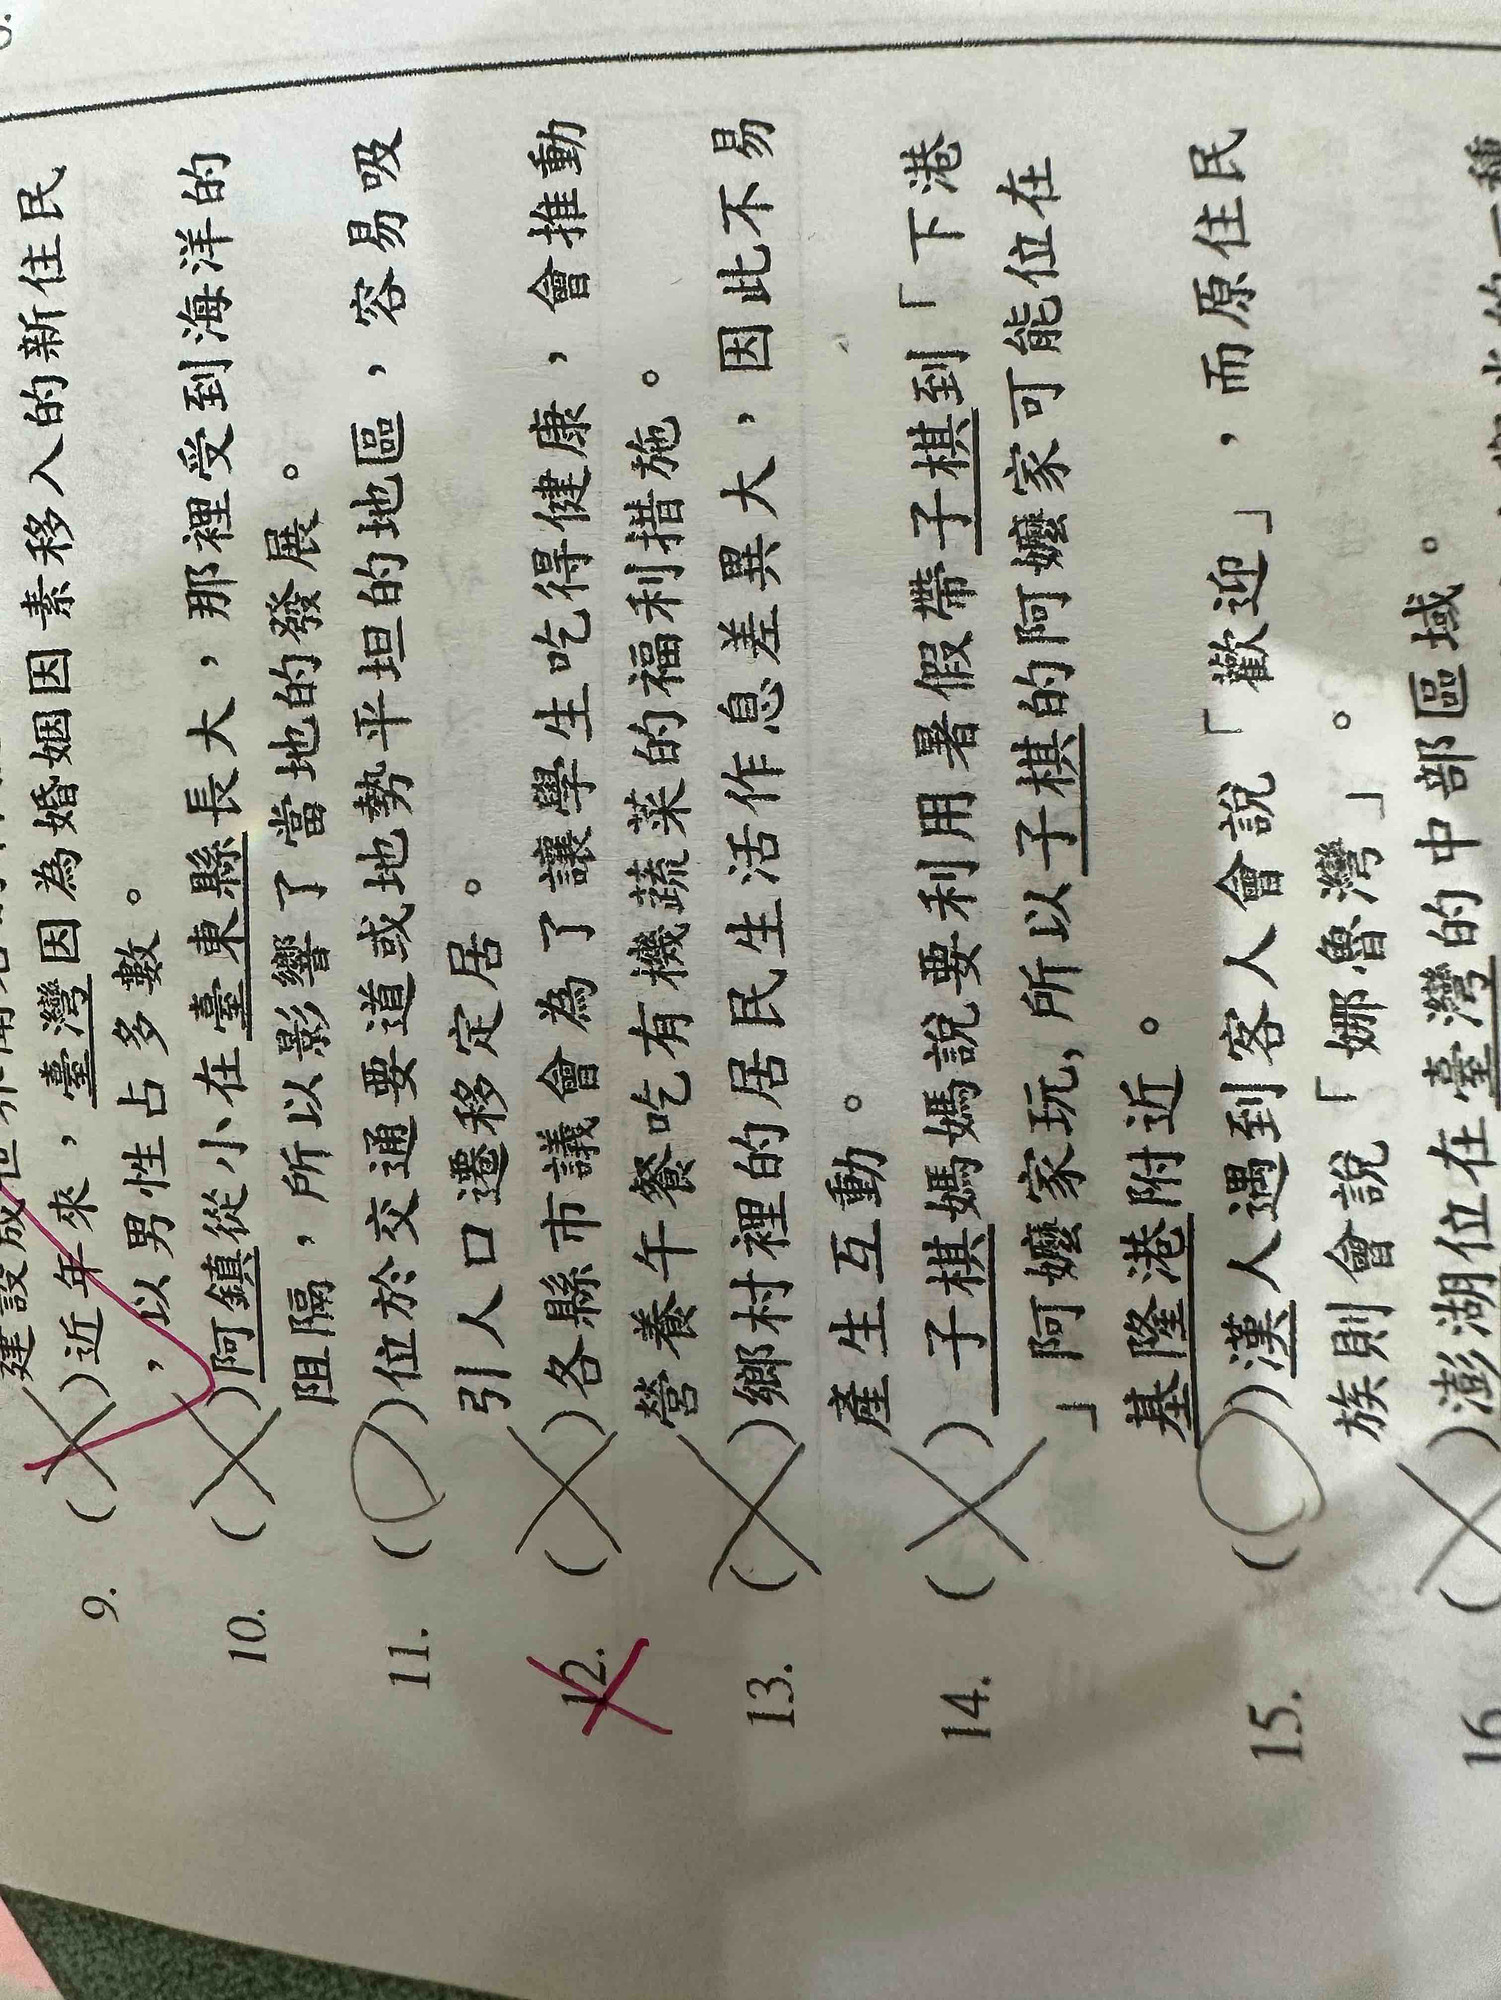 建設成世界
9. (X)近年來，臺灣因為婚姻因素移入的新住民
，以男性占多數。
10. (X)阿鎮從小在臺東縣長大，那裡受到海洋的
阻隔，所以影響了當地的發展。
11. (O)位於交通要道或地勢平坦的地區，容易吸
引人口遷移定居。
12. (X)各縣市議會為了讓學生吃得健康，會推動
營養午餐吃有機蔬菜的福利措施。
13. (X)鄉村裡的居民生活作息差異大，因此不易
產生互動。
14. (X)子棋媽媽說要利用暑假帶子棋到「下港
」阿嬤家玩，所以子棋的阿嬤家可能位在
基隆港附近。
15. (O)漢人遇到客人會說「歡迎」，而原住民
族則會說「娜魯灣」。
16. (X)澎湖位在臺灣的中部區域。